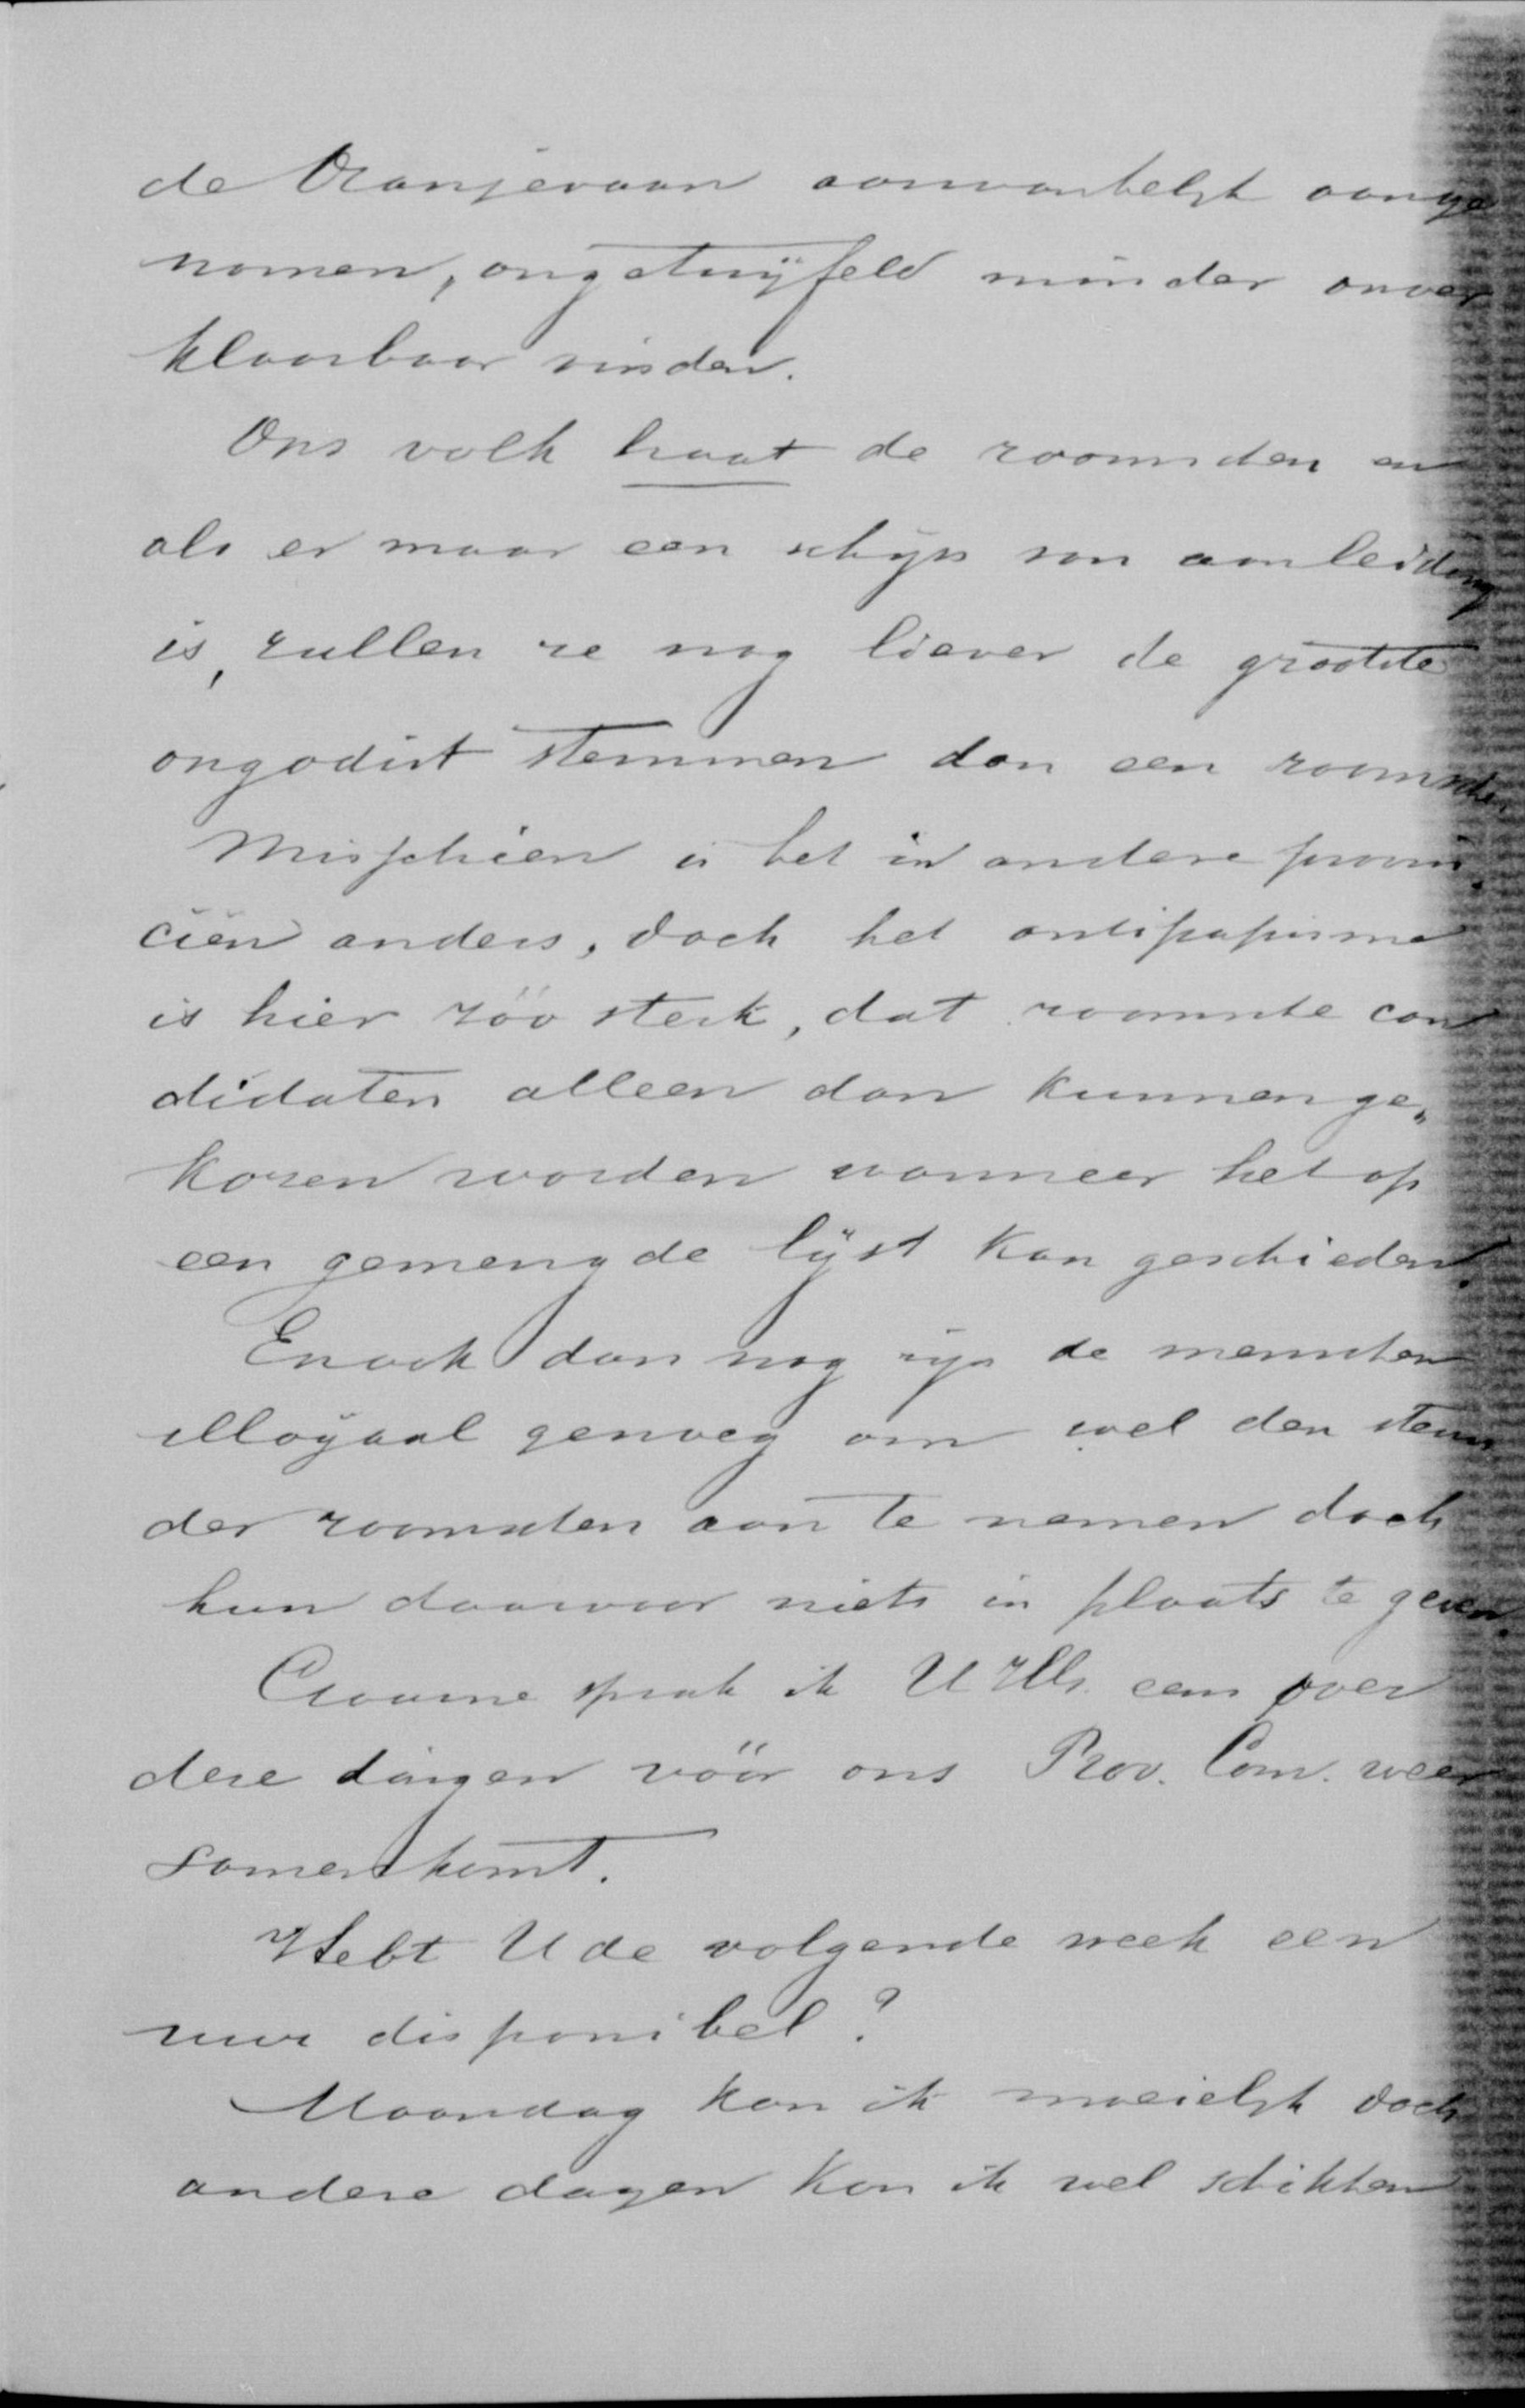 de Oranjevaan aanvankelijk aange
nomen, ongetwijfeld minder onver
klaarbaar vinden.
Ons volk haat de roomschen en
als er maar een schijn van aanleiding
is, zullen ze nog liever de grootste
ongodist stemmen dan een roomsche.
Misschien is het in andere provin
ciën anders, doch het antipapisme
is hier zóó sterk, dat roomsche can
didaten alleen dan kunnen ge„
kozen worden wanneer het op
een gemengde lijst kan geschieden.
En ook dan nog zijn de menschen
illoyaal genoeg om wel den steun
der roomschen aan te nemen doch
hun daarvoor niets in plaats te geven.
Gaarne sprak ik UEd. eens over
deze dingen vóór ons Prov. Com. weer
samenkomt.
Hebt U de volgende week een
uur disponibel?
Maandag kan ik moeielijk doch
andere dagen kan ik wel schikken